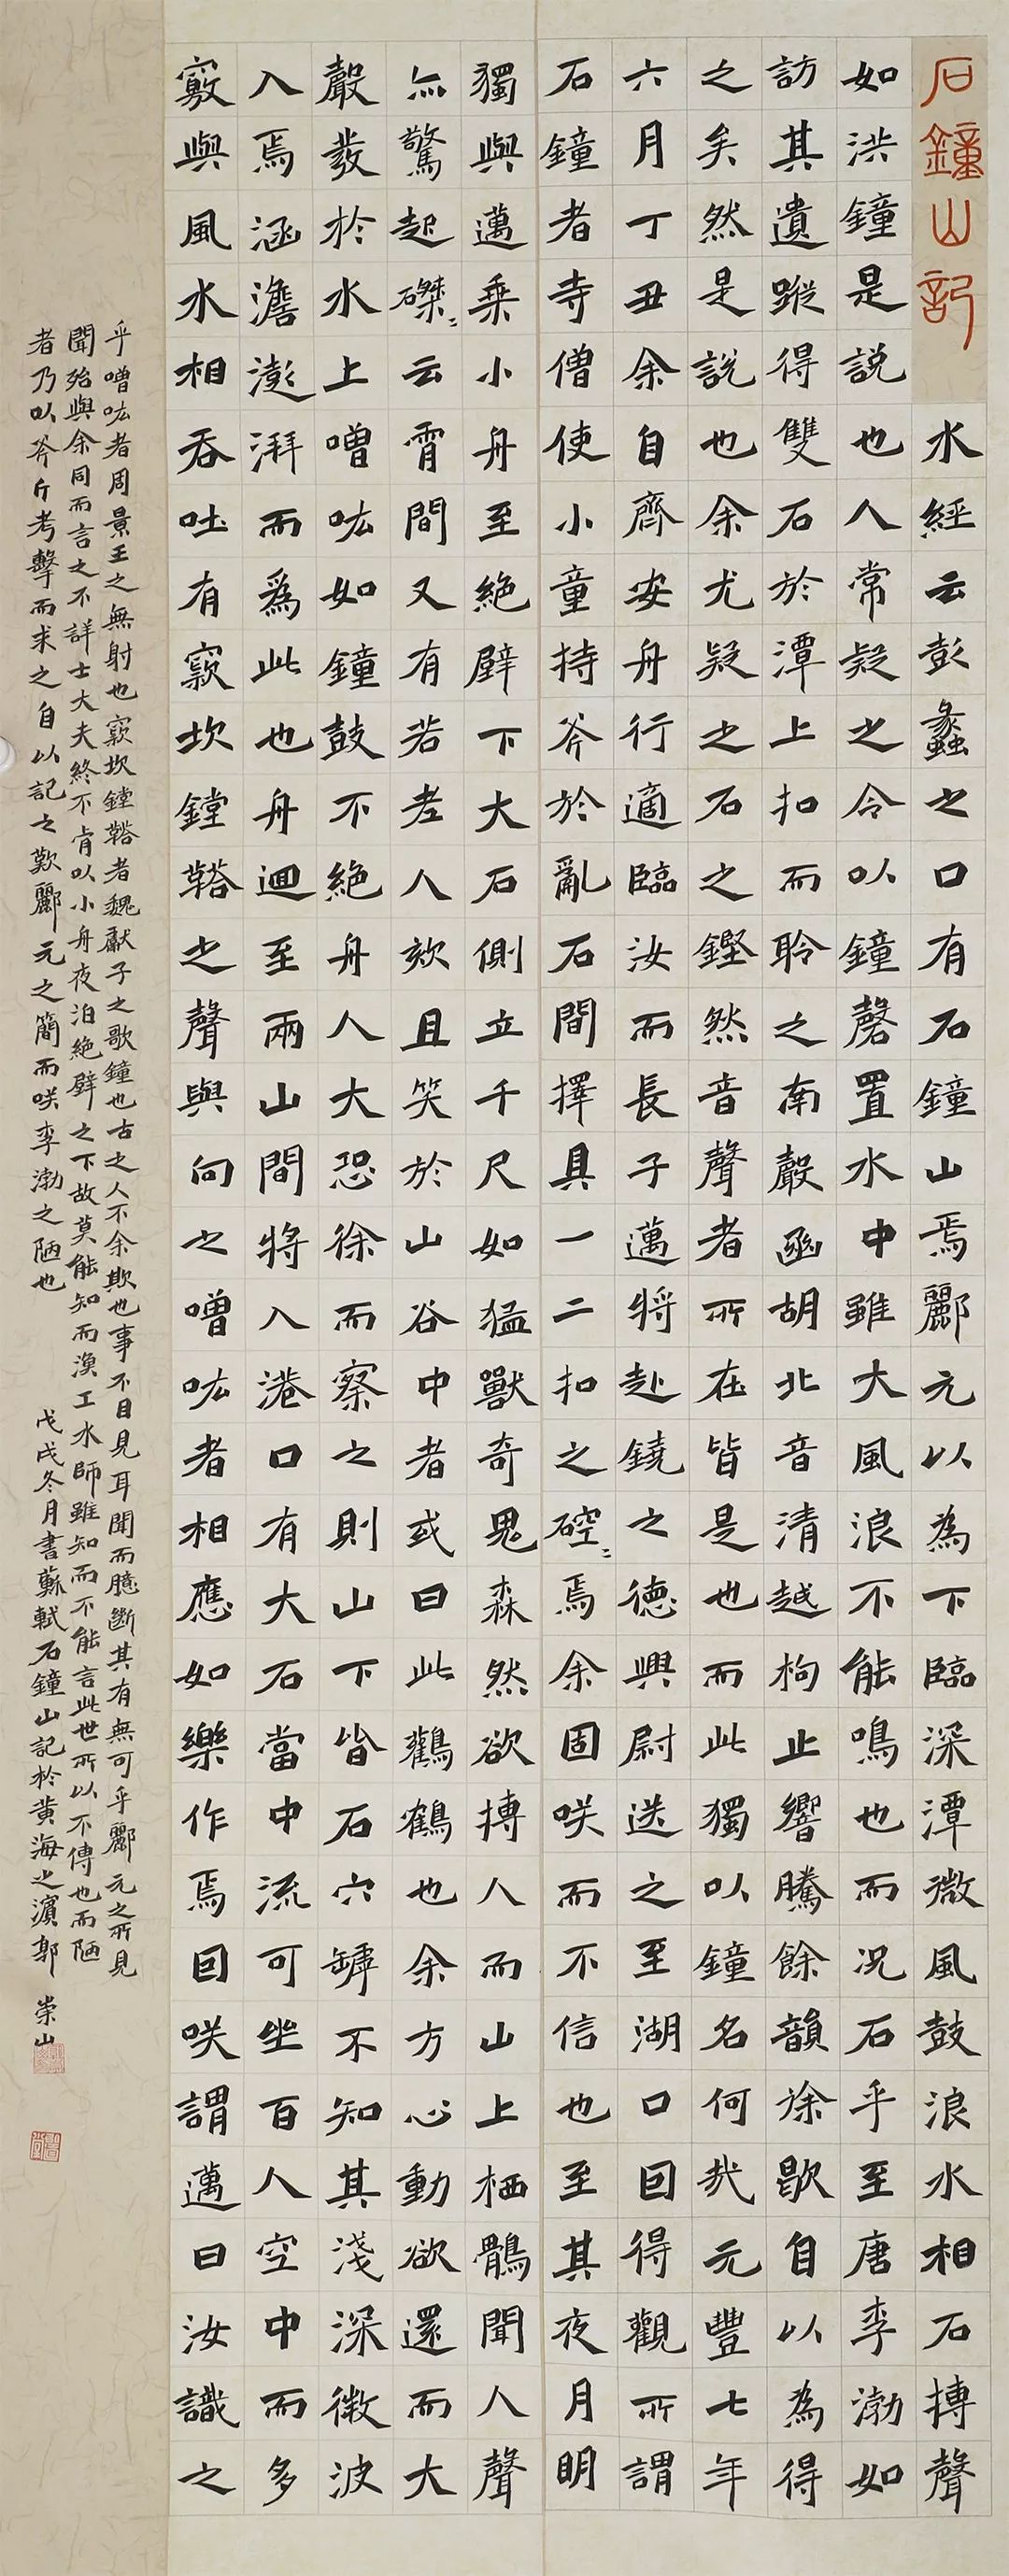 石鐘山記
水經云彭蠡之口有石鐘山焉酈元以為下臨深潭微風鼓浪水相石搏聲
如洪鐘是説也人常疑之令以鐘磬置水中雖大風浪不能鳴也而况石乎至唐李渤如
訪其遺蹤得雙石於潭上扣而聆之南聲函胡北音清越枹止響騰餘韻徐歇自以為得
之矣然是説也余尤疑之石之鏗然音聲者所在皆是也而此獨以鐘名何哉元豐七年
六月丁丑余自齊安舟行適臨汝而長子邁將赴鐃之德興尉送之至湖口因得觀所謂
石鐘者寺僧使小童持斧於亂石間擇具一二扣之硿〻焉余固咲而不信也至其夜月明
獨與邁乘小舟至絕壁下大石側立千尺如猛獸奇鬼森然欲搏人而山上栖鶻聞人聲
亦驚起磔〻云霄間又有若老人欬且笑於山谷中者或曰此鸛鶴也余方心動欲還而大
聲發於水上噌吰如鐘鼓不絕舟人大恐徐而察之則山下皆石穴罅不知其淺深微波
入焉涵澹澎湃而為此也舟迴至兩山間將入港口有大石當中流可坐百人空中而多
竅與風水相吞吐有窾坎鏜鞳之聲與向之噌吰者相應如樂作焉因咲謂邁曰汝識之
乎噌吰者周景王之無射也窾坎鏜鞳者魏獻子之歌鐘也古之人不余欺也事不目見耳聞而臆斷其有無可乎酈元之所見
聞殆與余同而言之不詳士大夫終不肯以小舟夜泊絕壁之下故莫能知而漁工水師雖知而不能言此世所以不傳也而陋
者乃以斧斤考擊而求之自以記之歎酈元之簡而咲李渤之陋也 戊戌冬月書蘇軾石鐘山記於黃海之濱郭崇山